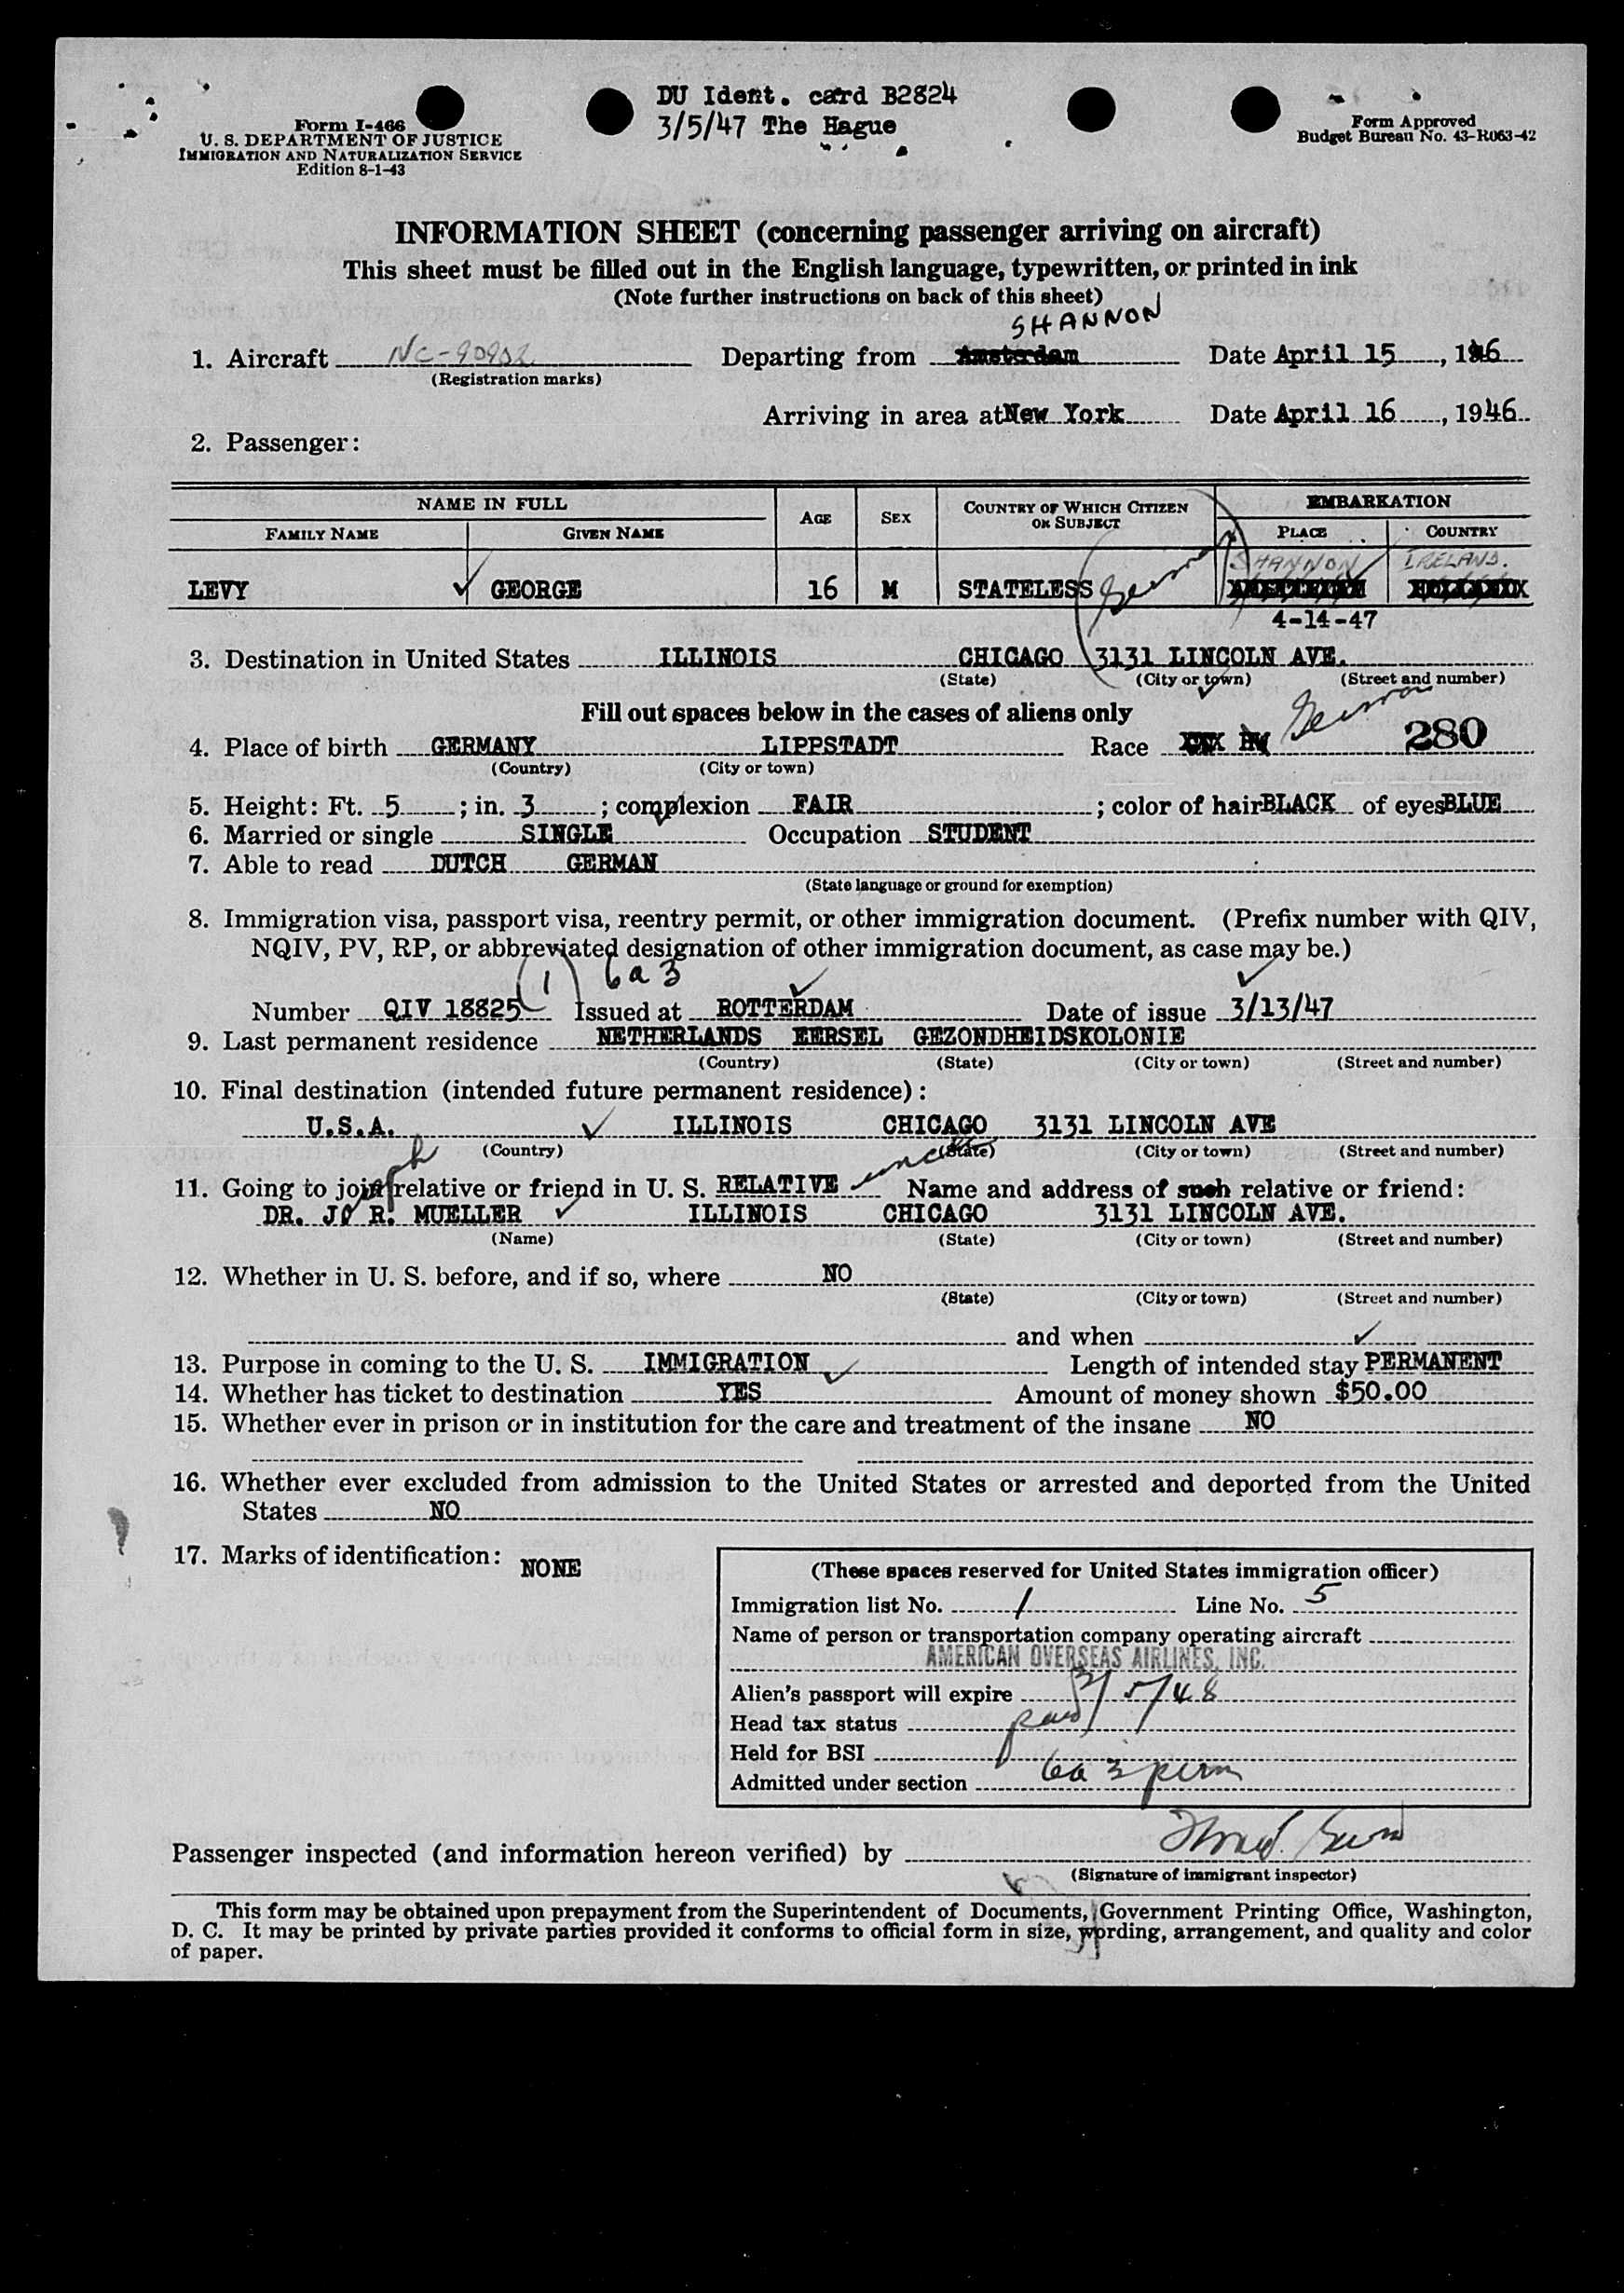 DU Ident. card B2824
3/5/47 The Hague
Form I-466
U. S. DEPARTMENT OF JUSTICE
IMMIGRATION AND NATURALIZATION SERVICE
Edition 8-1-43
Form Approved
Budget Bureau No. 43-R063-42
INFORMATION SHEET (concerning passenger arriving on aircraft)
This sheet must be filled out in the English language, typewritten, or printed in ink
(Note further instructions on back of this sheet)
SHANNON
1. Aircraft NC-90902 Departing from Amsterdam Date April 15, 1946
(Registration marks)
Arriving in area at New York Date April 16, 1946
2. Passenger:
NAME IN FULL AGE SEX COUNTRY OF WHICH CITIZEN OR SUBJECT EMBARKATION
FAMILY NAME GIVEN NAME PLACE COUNTRY
SHANNON IRELAND.
LEVY ✓ GEORGE 16 M STATELESS German
4-14-47
3. Destination in United States ILLINOIS CHICAGO 3131 LINCOLN AVE.
(State) (City or town) (Street and number)
Fill out spaces below in the cases of aliens only
4. Place of birth GERMANY LIPPSTADT Race German 280
(Country) (City or town)
5. Height: Ft. 5; in. 3; complexion FAIR; color of hair BLACK of eyes BLUE
6. Married or single SINGLE Occupation STUDENT
7. Able to read DUTCH GERMAN
(State language or ground for exemption)
8. Immigration visa, passport visa, reentry permit, or other immigration document. (Prefix number with QIV,
NQIV, PV, RP, or abbreviated designation of other immigration document, as case may be.)
(1) 6a3
Number QIV 18825 Issued at ROTTERDAM Date of issue 3/13/47
9. Last permanent residence NETHERLANDS EERSEL GEZONDHEIDSKOLONIE
(Country) (State) (City or town) (Street and number)
10. Final destination (intended future permanent residence):
U.S.A. ✓ ILLINOIS CHICAGO 3131 LINCOLN AVE
(Country) (State) (City or town) (Street and number)
11. Going to join relative or friend in U. S. RELATIVE uncle Name and address of such relative or friend:
DR. JOseph R. MUELLER ✓ ILLINOIS CHICAGO 3131 LINCOLN AVE.
(Name) (State) (City or town) (Street and number)
12. Whether in U. S. before, and if so, where NO
(State) (City or town) (Street and number)
and when ✓
13. Purpose in coming to the U. S. IMMIGRATION ✓ Length of intended stay PERMANENT
14. Whether has ticket to destination YES Amount of money shown $50.00
15. Whether ever in prison or in institution for the care and treatment of the insane NO
16. Whether ever excluded from admission to the United States or arrested and deported from the United
States NO
17. Marks of identification: NONE
(These spaces reserved for United States immigration officer)
Immigration list No. 1 Line No. 5
Name of person or transportation company operating aircraft
AMERICAN OVERSEAS AIRLINES, INC.
Alien's passport will expire 3/5/48
Head tax status paid
Held for BSI
Admitted under section 6a3 perm
Passenger inspected (and information hereon verified) by
(Signature of immigrant inspector)
This form may be obtained upon prepayment from the Superintendent of Documents, Government Printing Office, Washington,
D. C. It may be printed by private parties provided it conforms to official form in size, wording, arrangement, and quality and color
of paper.